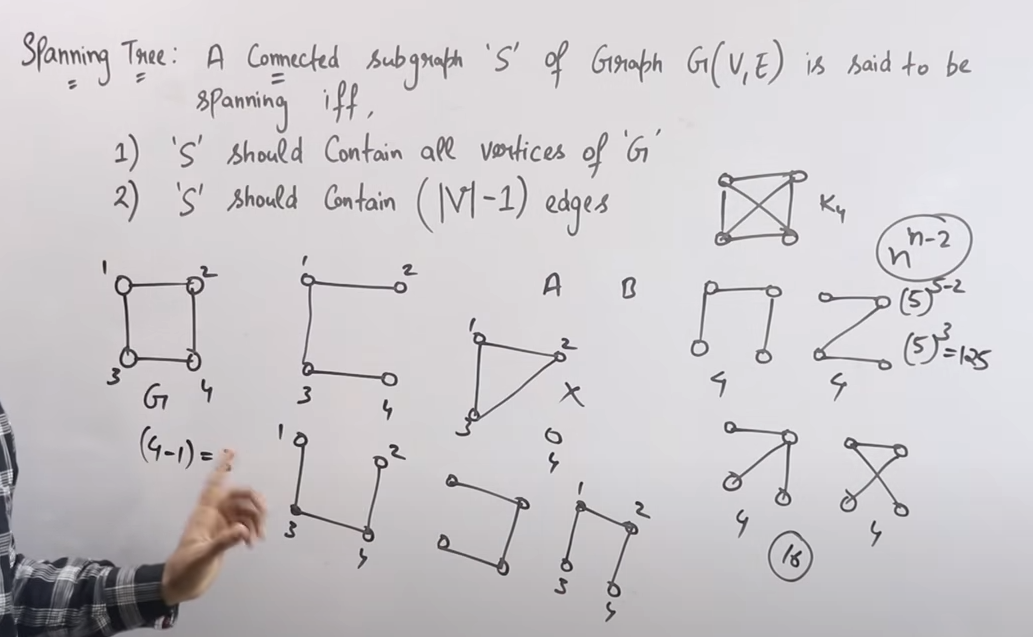 Spanning Tree: A Connected subgraph 'S' of Graph G(V,E) is said to be
spanning iff,
1) 'S' should Contain all vertices of 'G'
2) 'S' should Contain (|V|-1) edges
K4
n^n-2
1 2
3 4
G
(4-1)=
1 2
3 4
A B
1 2
3
X
4
4 4
(5)^5-2
(5)^3=125
1 2
3 4
1 2
3 4
4 4
16